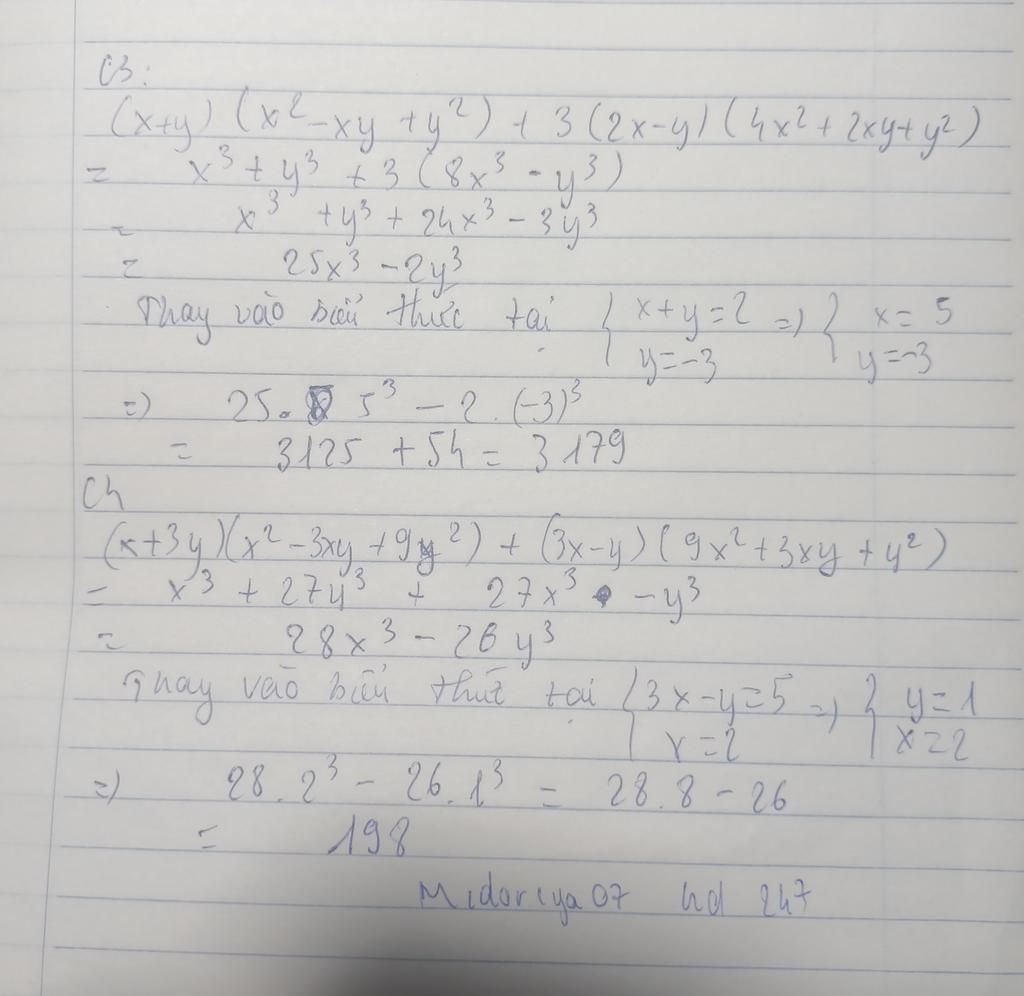 C3:
(x+y) (x² - xy + y²) + 3 (2x-y) (4x² + 2xy + y²)
= x³ + y³ + 3 (8x³ - y³)
= x³ + y³ + 24x³ - 3y³
= 25x³ - 2y³
Thay vào biểu thức tại { x+y=2 => { x= 5
y=-3 y=-3
=> 25. 5³ - 2. (-3)³
= 3125 + 54 = 3179
C4
(x+3y)(x² - 3xy + 9y²) + (3x-y) (9x² + 3xy + y²)
= x³ + 27y³ + 27x³ - y³
= 28x³ - 26y³
Thay vào biểu thức tại { 3x-y=5 => { y=1
x=2 x=2
=> 28. 2³ - 26.1³ = 28.8 - 26
= 198
Midoriya07 hd 247